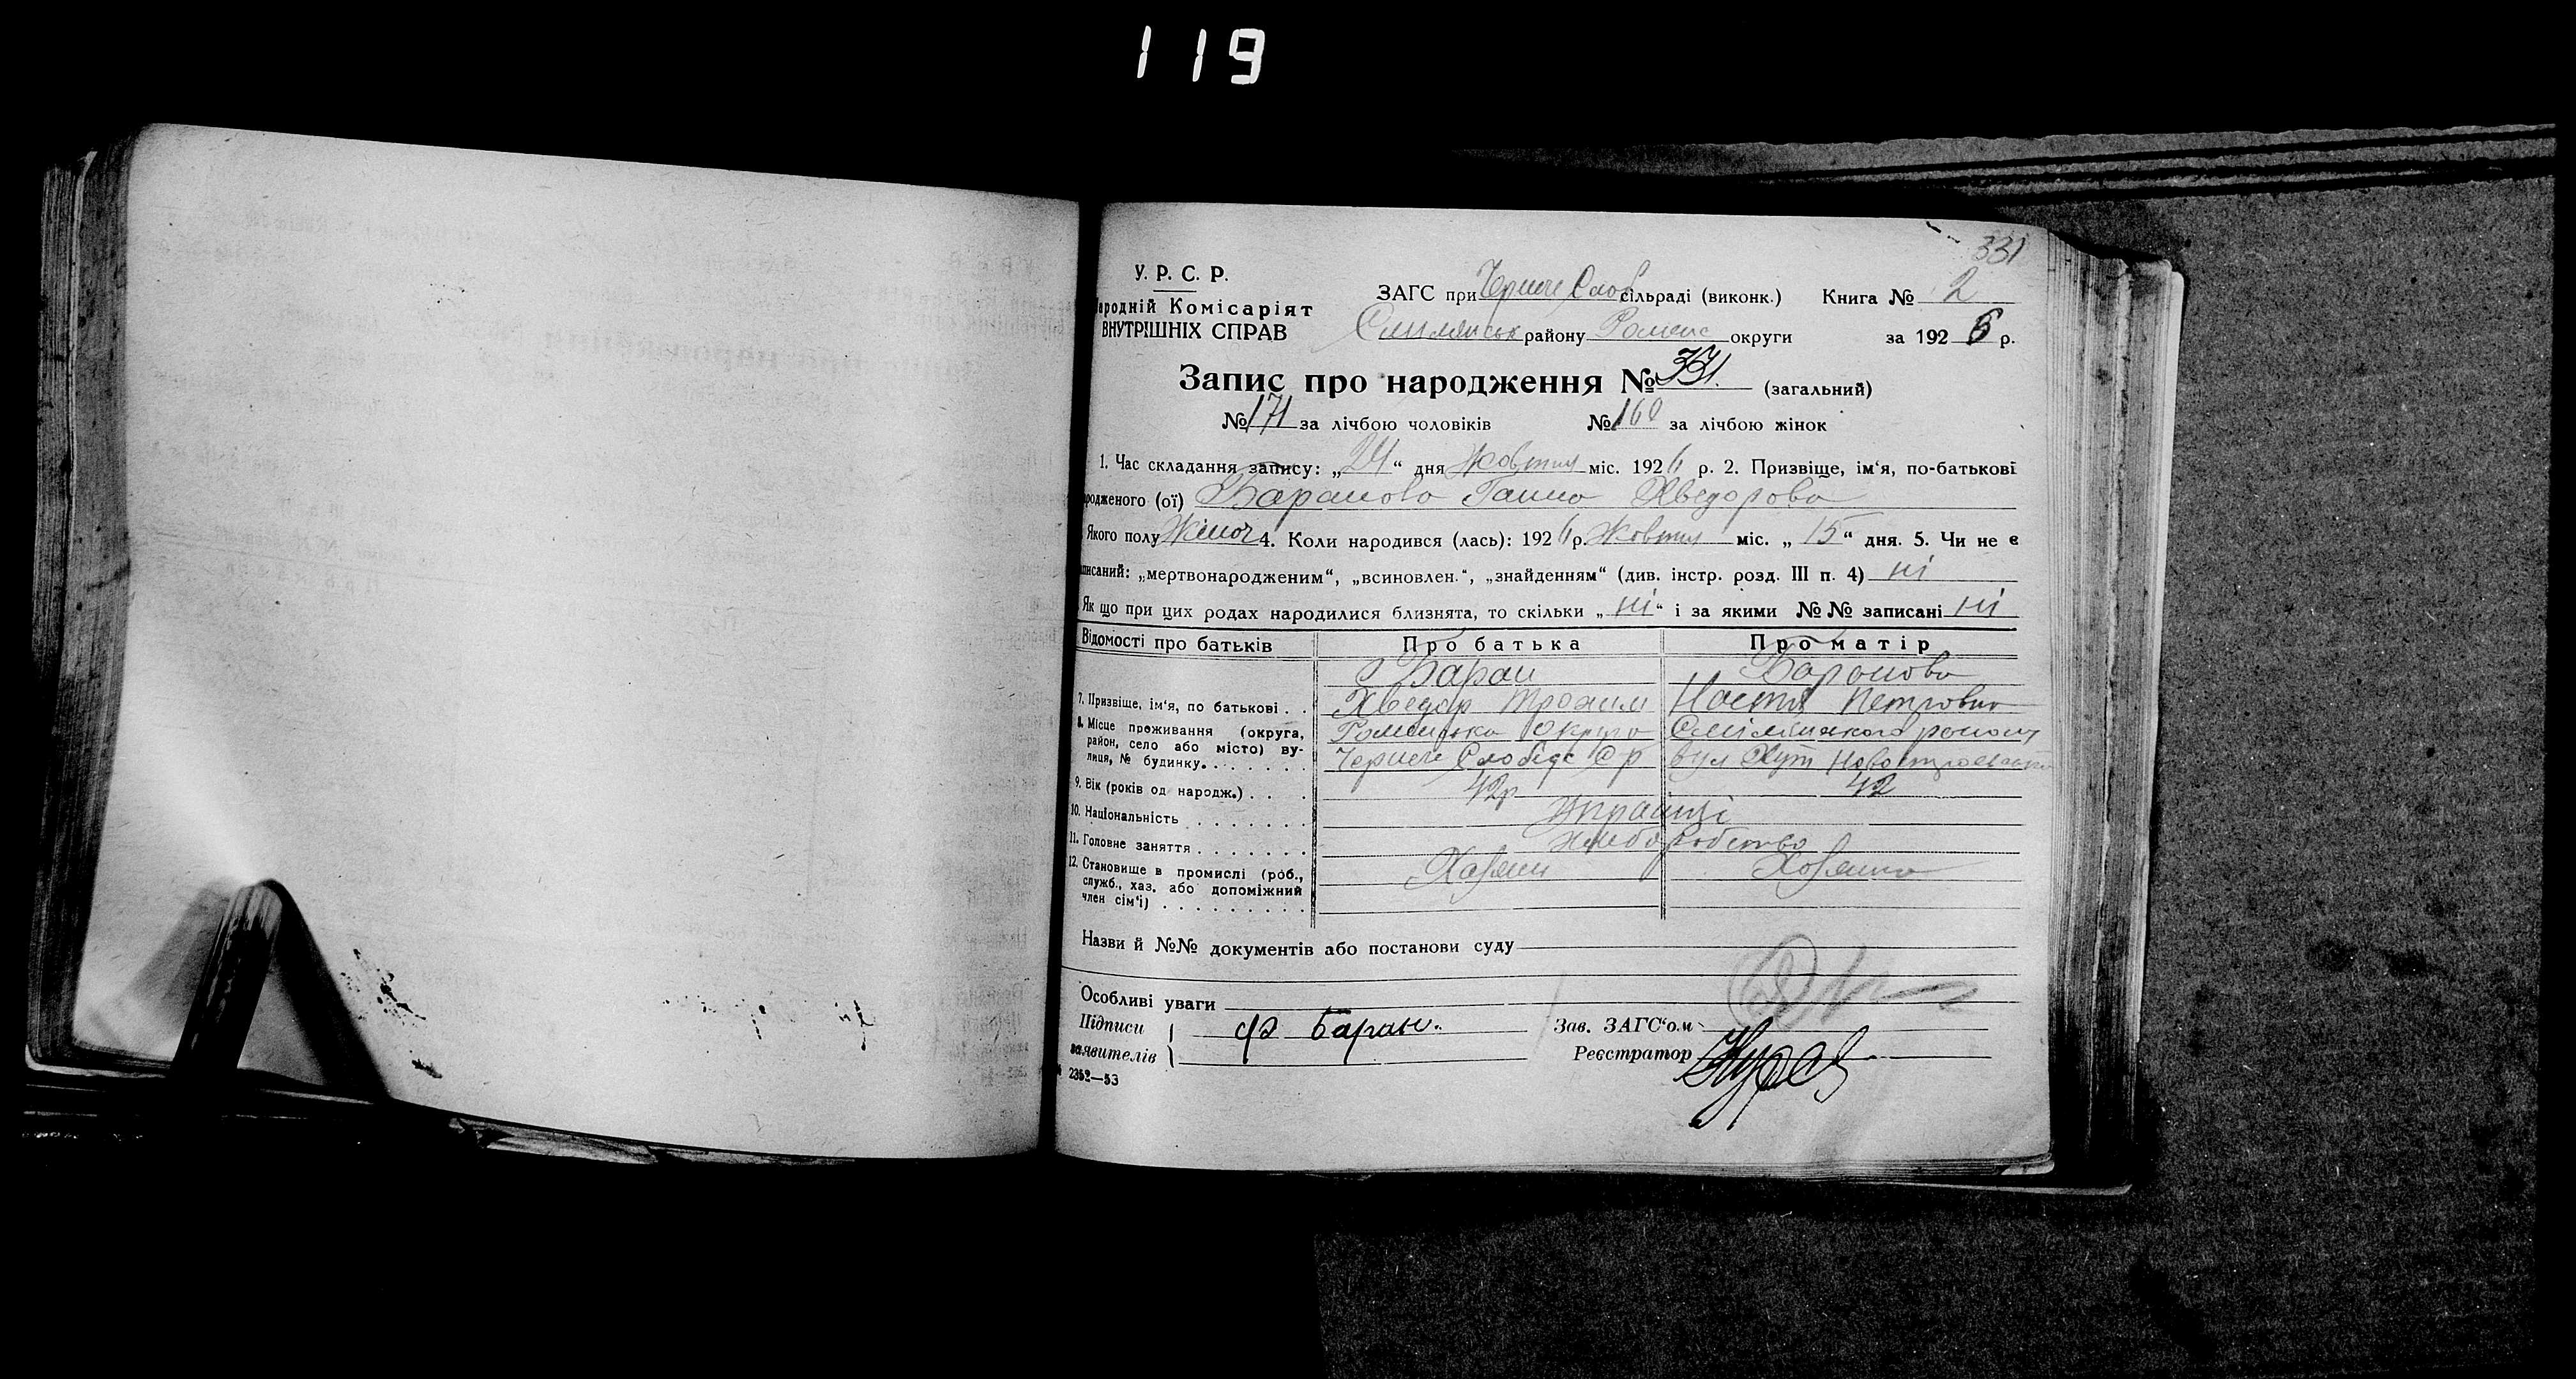 119
331
У. Р. С. Р.
Народній Комісаріят
ВНУТРІШНІХ СПРАВ
ЗАГС при Чернече Слоб сільраді (виконк.) Книга № 2
Смілянськ району Роменс округи за 1926 р.
Запис про народження № 331. (загальний)
№ 171 за лічбою чоловіків № 160 за лічбою жінок
1. Час складання запису: „24“ дня Жовтня міс. 1926 р. 2. Призвіще, ім‘я, по-батькові
родженого (ої) Баранова Ганна Хведорова
Якого полу Жіноч 4. Коли народився (лась): 1926 р. Жовтня міс. „15“ дня. 5. Чи не є
писаний: „мертвонародженим“, „всиновлен.“, „знайденням“ (див. інстр. розд. III п. 4) ні
Як що при цих родах народилися близнята, то скільки „ні“ і за якими №№ записані ні
Відомості про батьків Про батька Про матір
Баран Баранова
7. Призвіще, ім‘я, по батькові . . Хведор Трохим Настя Петровна
8. Місце проживання (округа, Роменська Округа Смілянского району
район, село або місто) ву-
лиця, № будинку. . . . . . . Чернече Слобідс С р вул Хут
9. Вік (років од народж.) . . . 42р 42
10. Національність . . . . . . . Українці
11. Головне заняття . . . . . . . хліборобство
12. Становище в промислі (роб., Хазяин Хозяйка
служб., хаз. або допоміжний
член сім‘ї) . . . . . . . . .
Назви й №№ документів або постанови суду
Особливі уваги
Підписи Ф Баран. Зав. ЗАГС‘ом
заявителів Реєстратор
2352—53